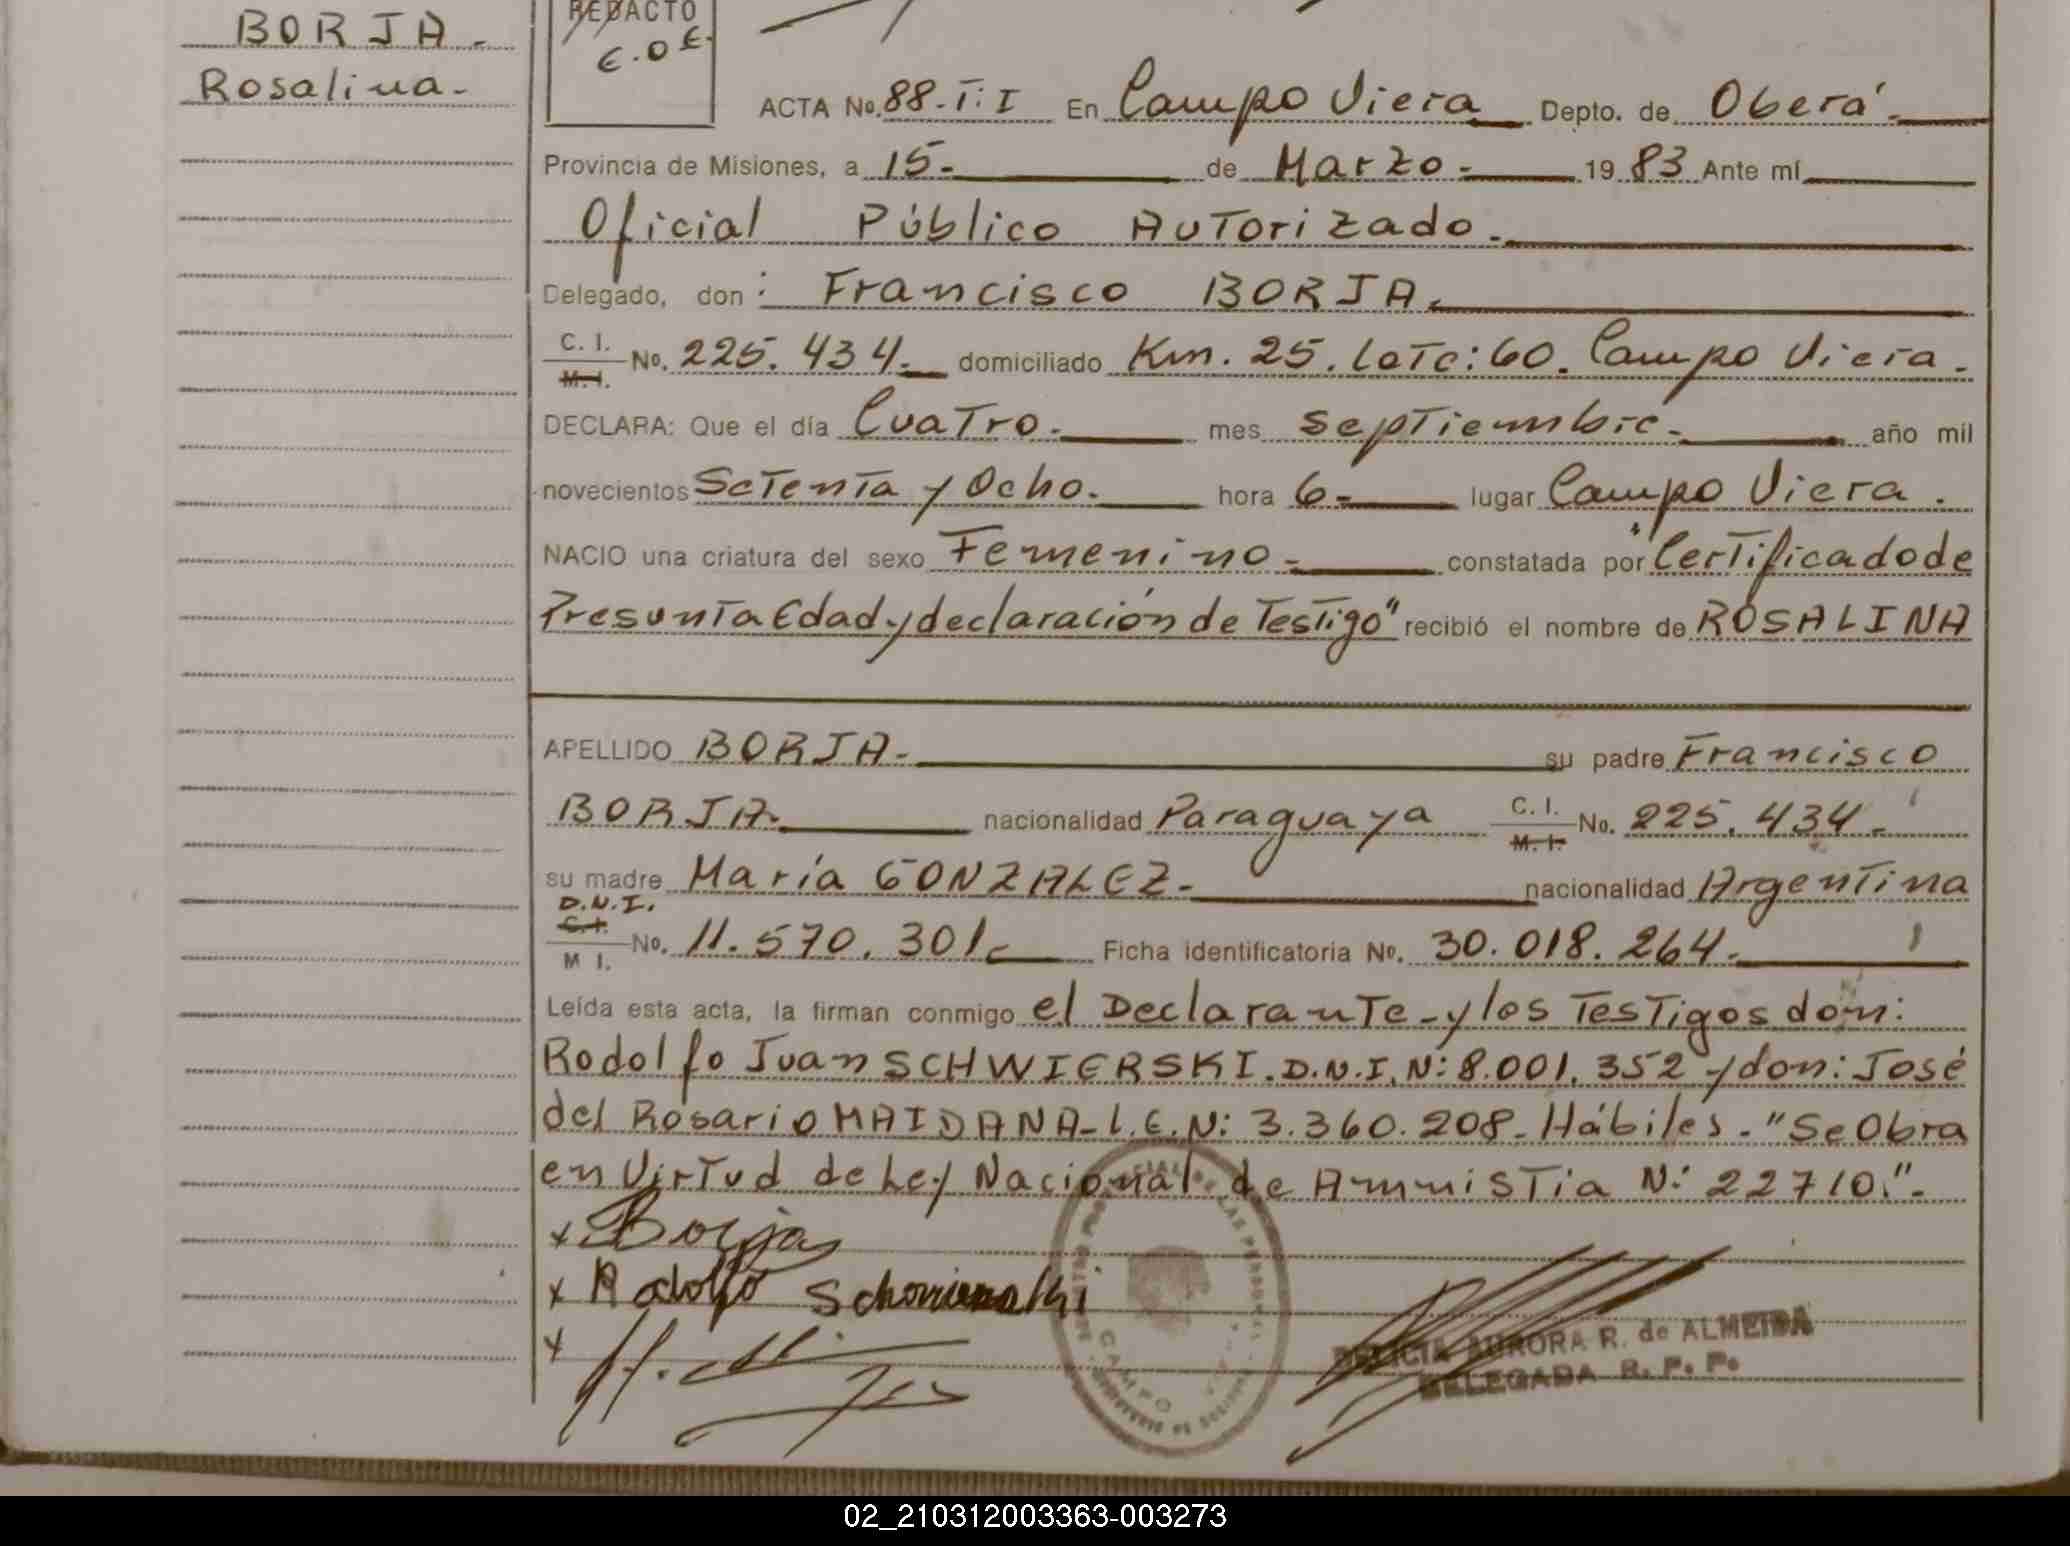 BORJA.
Rosalina.
REDACTO
E.O.E.
ACTA No. 88.T:I En Campo Viera Depto. de Oberá.
Provincia de Misiones, a 15. de Marzo. 1983 Ante mí
Oficial Público AuTorizado.
Delegado, don: Francisco BORJA.
C. I. M. I. No. 225.434. domiciliado Km. 25. LoTe: 60. Campo Viera.
DECLARA: Que el día CuaTro. mes sepTiembre. año mil
novecientos SeTenTa y Ocho. hora 6. lugar Campo Viera.
NACIO una criatura del sexo Femenino. constatada por "CerTificado de
PresunTa Edad y declaración de TesTigo" recibió el nombre de ROSALINA
APELLIDO BORJA. su padre Francisco
BORJA. nacionalidad Paraguaya C. I. M. I. No. 225.434.
su madre María GONZALEZ. nacionalidad ArgenTina
D.N.I. C. I. M I. No. 11.570.301. Ficha identificatoria No. 30.018.264.
Leída esta acta, la firman conmigo el DeclaranTe y los TesTigos don:
Rodolfo Juan SCHWIERSKI. D.N.I. N: 8.001.352 y don: José
del Rosario MAIDANA. L.E. N: 3.360.208. Hábiles. "Se Obra
en VirTud de Ley Nacional de AmnisTia N: 22710.".
x Borja
x Rodolfo
x
CAMPO
DELICIA AURORA R. de ALMEIDA
DELEGADA R. P. P.
02_210312003363-003273